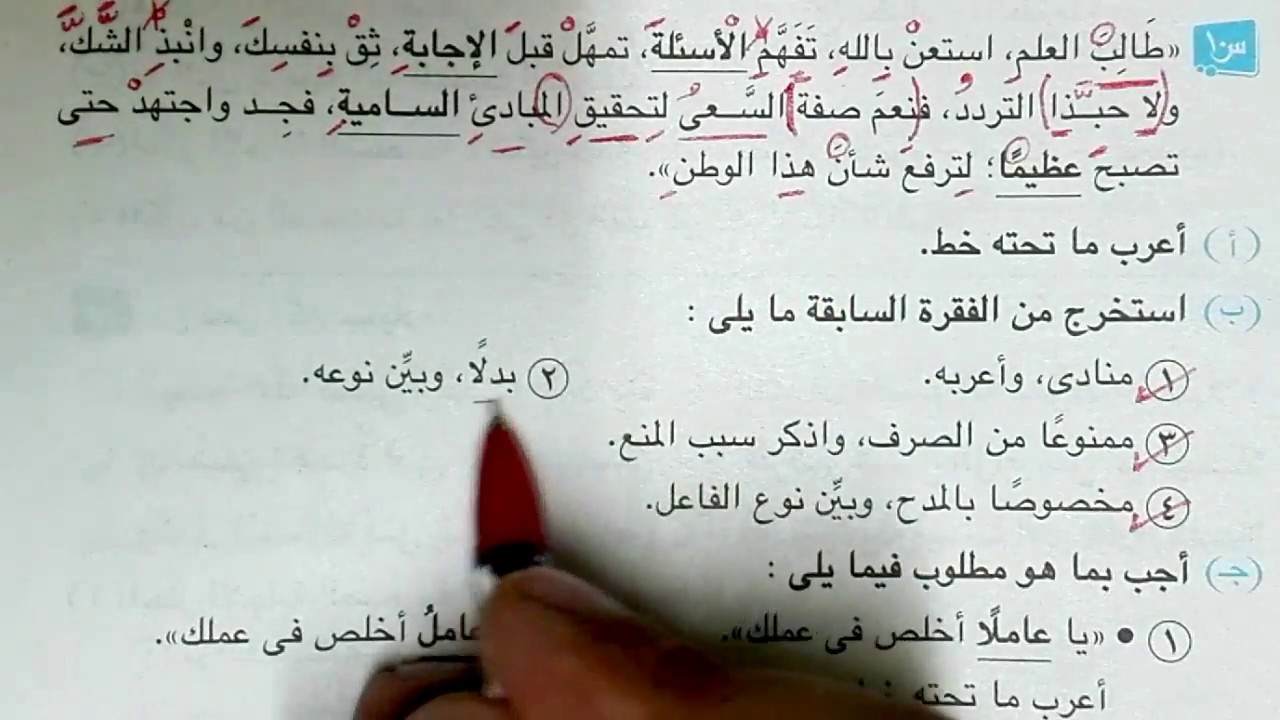 س١٠ «طَالِبَ العلمِ، استعنْ بِاللهِ، تَفَهَّمِ الْأسئلةَ، تمهَّلْ قبلَ الإجابةِ، ثِقْ بِنفسِكَ، وانْبذِ الشَّكَّ،
ولا حبَّذا التردُدُ، فنِعمَ صفةً السَّعىُ لِتحقيقِ المبادئِ الساميةِ، فجِد واجتهدْ حتى
تصبحَ عظيمًا؛ لِترفعَ شأنَ هذا الوطنِ».
(أ) أعرب ما تحته خط.
(ب) استخرج من الفقرة السابقة ما يلى :
١ منادى، وأعربه.
٢ بدلًا، وبيِّن نوعه.
٣ ممنوعًا من الصرف، واذكر سبب المنع.
٤ مخصوصًا بالمدح، وبيِّن نوع الفاعل.
(جـ) أجب بما هو مطلوب فيما يلى :
١ • «يا عاملًا أخلص فى عملك».
عاملُ أخلص فى عملك».
أعرب ما تحته